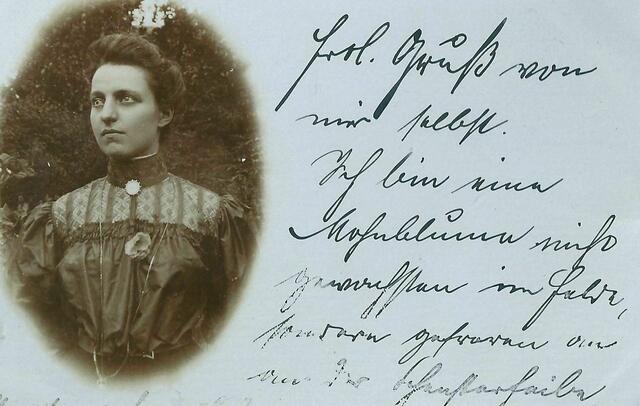 Frdl. Gruß von
mir selbst.
Ich bin eine
Mohnblume nicht
gewachsen im Felde,
sondern gefroren an
an der Fensterscheibe